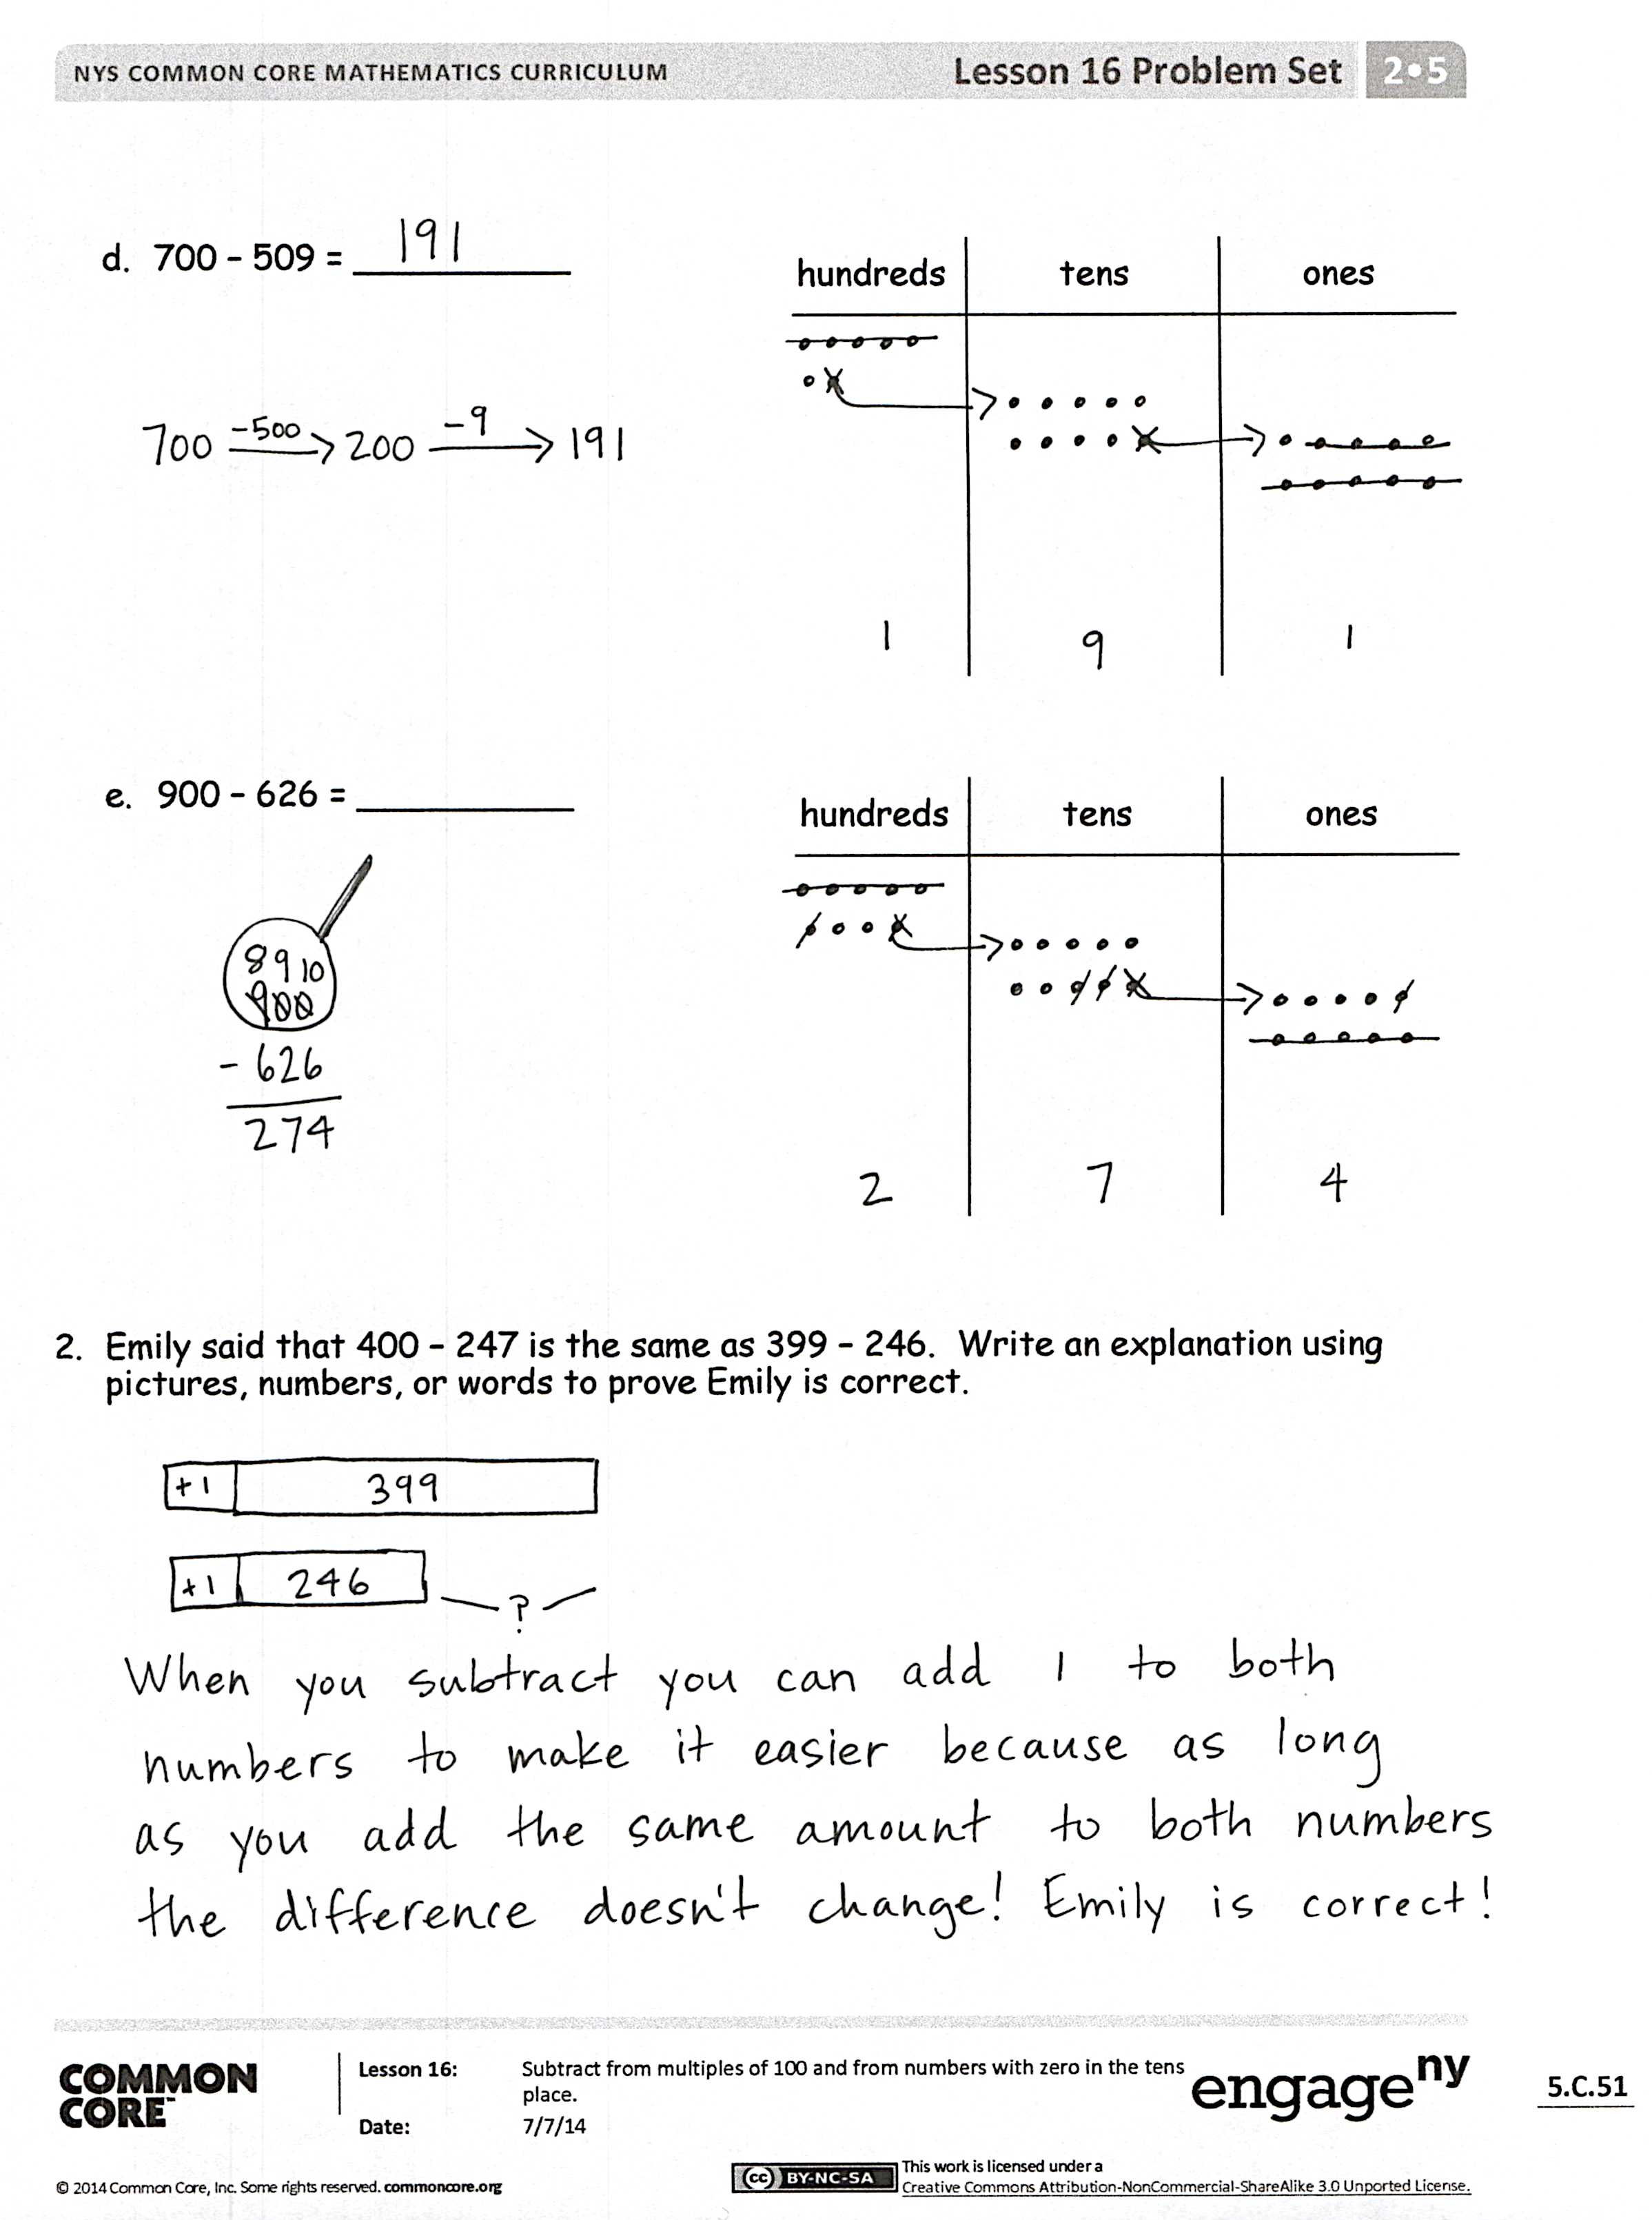 NYS COMMON CORE MATHEMATICS CURRICULUM Lesson 16 Problem Set 2•5
d. 700 - 509 = 191
hundreds tens ones
700 -500→ 200 -9→ 191
1 9 1
e. 900 - 626 =
hundreds tens ones
8 9 10
900
- 626
274
2 7 4
2. Emily said that 400 - 247 is the same as 399 - 246. Write an explanation using
pictures, numbers, or words to prove Emily is correct.
+1 399
+1 246
?
When you subtract you can add 1 to both
numbers to make it easier because as long
as you add the same amount to both numbers
the difference doesn't change! Emily is correct!
COMMON
CORE™
Lesson 16: Subtract from multiples of 100 and from numbers with zero in the tens
place.
Date: 7/7/14
engage ny
5.C.51
© 2014 Common Core, Inc. Some rights reserved. commoncore.org
cc BY-NC-SA
This work is licensed under a
Creative Commons Attribution-NonCommercial-ShareAlike 3.0 Unported License.